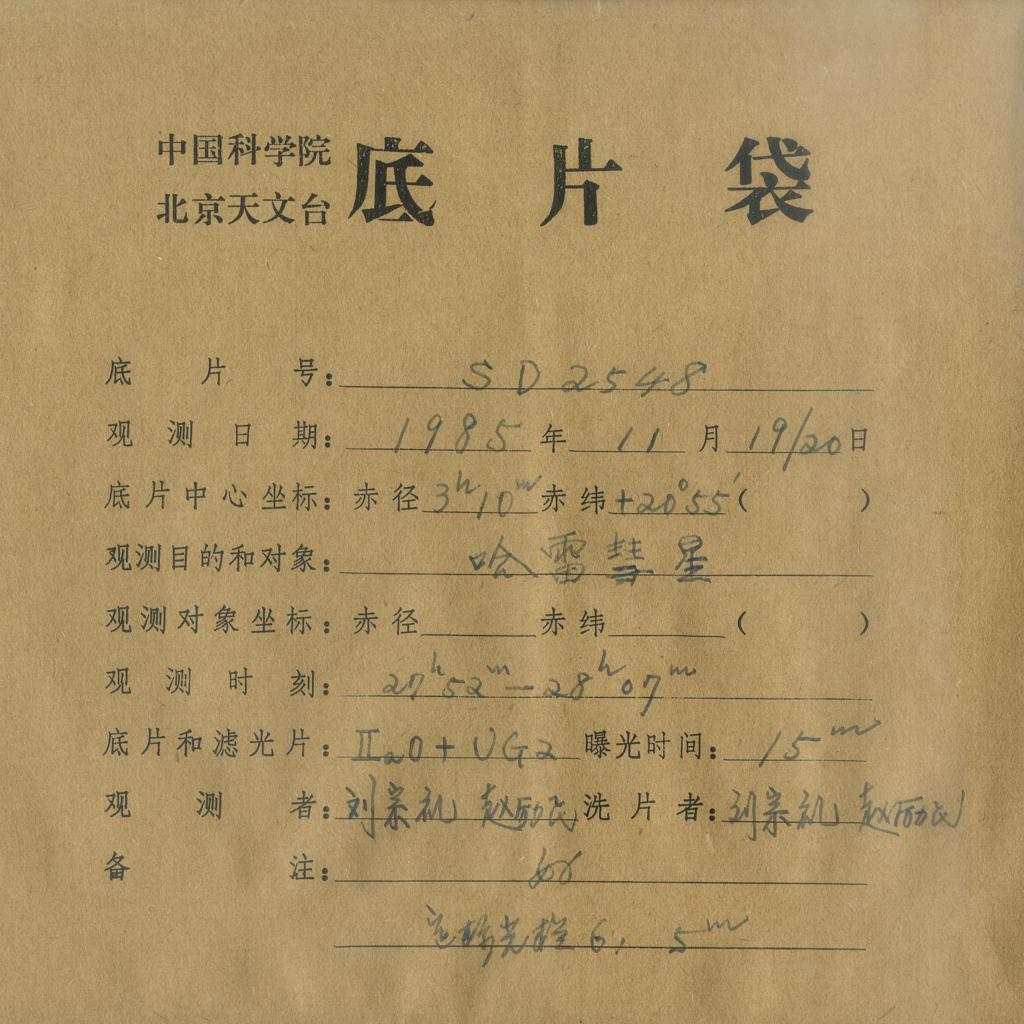 中国科学院
北京天文台
底片袋
底片号：SD2548
观测日期：1985年11月19/20日
底片中心坐标：赤径3ʰ10ᵐ赤纬+20°55′（ ）
观测目的和对象：哈雷彗星
观测对象坐标：赤径 赤纬 （ ）
观测时刻：27ʰ52ᵐ—28ʰ07ᵐ
底片和滤光片：Ⅱa0+UG2 曝光时间：15ᵐ
观测者：刘宗礼 赵励民 洗片者：刘宗礼 赵励民
备注：
光楔 6, 5ᵐ